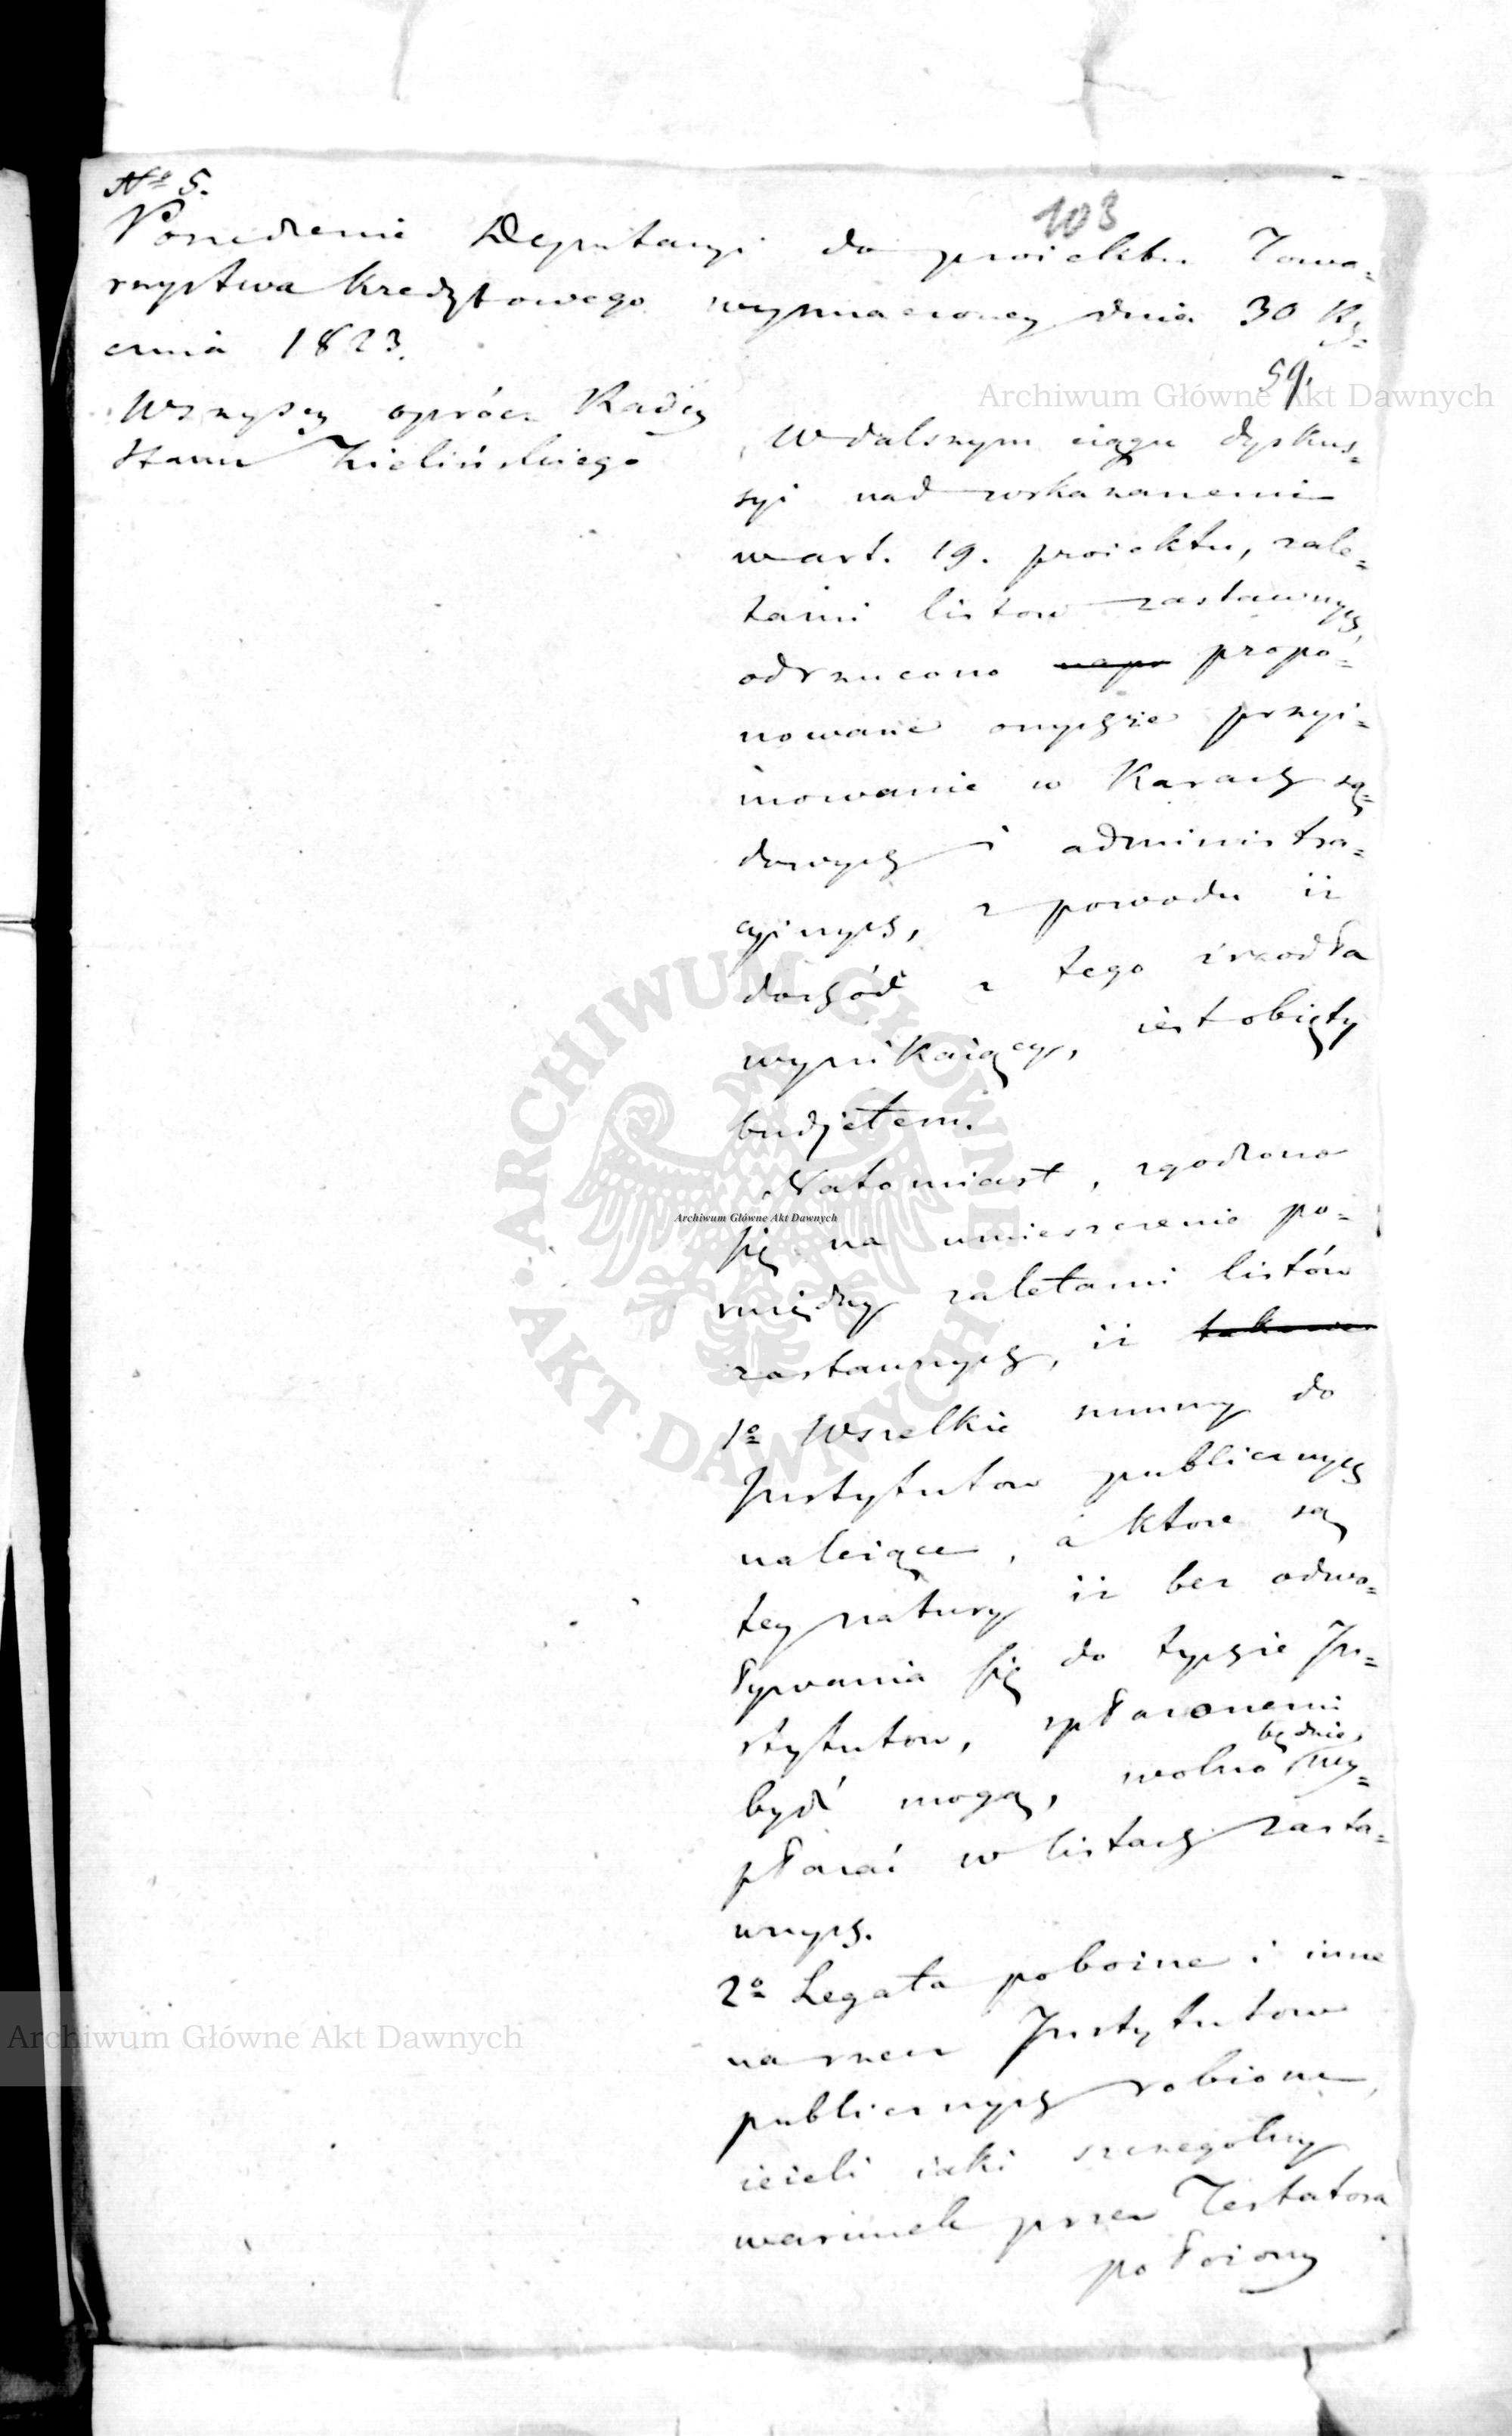 Nº 5.
103
Posiedzenie Deputacyi do proiektu Towa=
rzystwa Kredytowego wyznaczoney dnia 30 Ry=
cznia 1823.
59.
Archiwum Główne Akt Dawnych
Wszyscy oprócz Radcy
Stanu Zielińskiego
W dalszym ciągu dyskus=
syi nad wskazanemi
w art. 19. proiektu, zale=
tami listow zastawnych,
odrzucono napr propo=
nowane onychże przyi=
mowanie w Karach są=
dowych i administra=
cyinych, z powodu iż
dochód z tego źrzodła
wynikaiący, iest obięty
budjetem.
Natomiast, zgodzono
się na umieszczenie po=
między zaletami listów
zastawnych, iż
1º Wszelkie summy do
Instytutow publicznych
należące, a ktore są
tey natury iż bez odwo=
ływania się do tychże In=
stytutow, spłaconemi
bydź mogą, wolno będzie, wy=
płacać w listach zasta=
wnych.
2º Legata pobożne i inne
na rzecz Instytutow
publicznych robione,
ieżeli iaki szczegolny
warunek przez Testatora
położony
ARCHIWUM GŁÓWNE AKT DAWNYCH
Archiwum Główne Akt Dawnych
Archiwum Główne Akt Dawnych